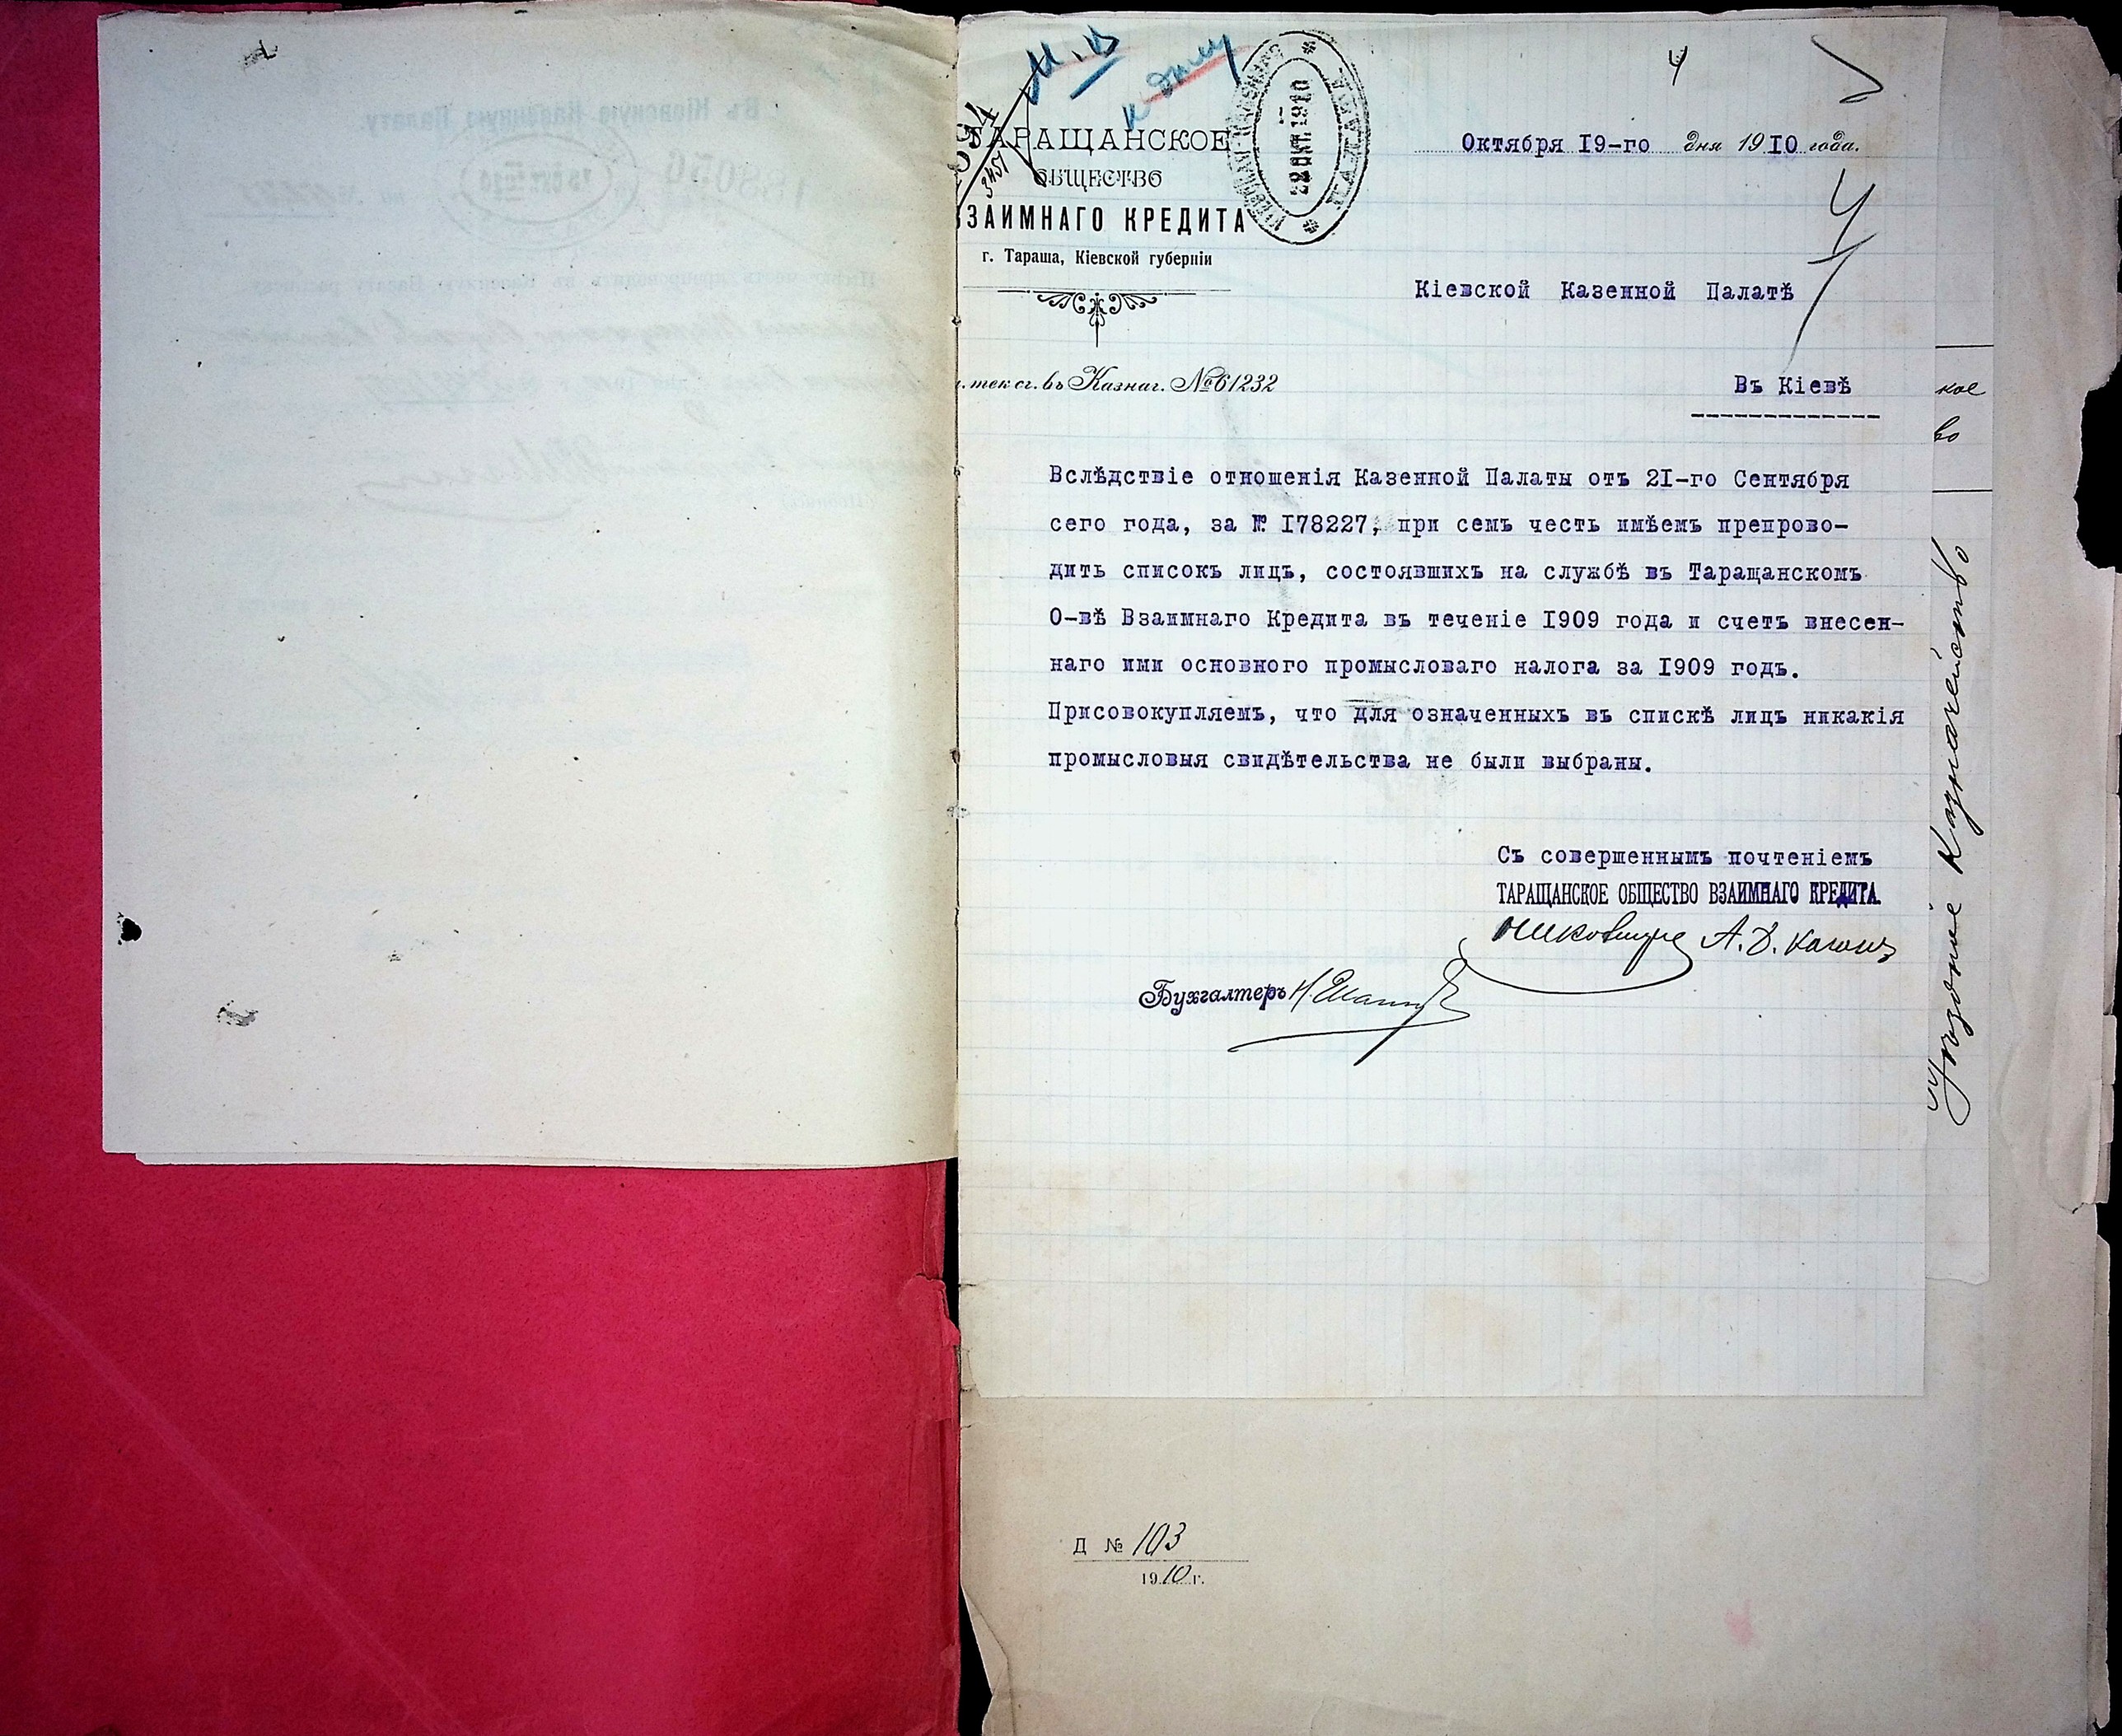 М.В
к делу
3451
ТАРАЩАНСКОЕ
ОБЩЕСТВО
ВЗАИМНАГО КРЕДИТА
г. Тараша, Кіевской губерніи
КІЕВСКАЯ КАЗЕННАЯ
22 ОКТ. 1910
ПАЛАТА
4
Октября I9-го дня 19I0 года.
4
Кіевской Казенной Палатѣ
. тек сч. въ Казнач. № 61232
Въ Кіевѣ
Вслѣдствіе отношенія Казенной Палаты отъ 2I-го Сентября
сего года, за № I78227, при семъ честь имѣемъ препрово-
дить списокъ лицъ, состоявшихъ на службѣ въ Таращанскомъ
О-вѣ Взаимнаго Кредита въ теченіе I909 года и счетъ внесен-
наго ими основного промысловаго налога за I909 годъ.
Присовокупляемъ, что для означенныхъ въ спискѣ лицъ никакія
промысловыя свидѣтельства не были выбраны.
Съ совершеннымъ почтеніемъ
ТАРАЩАНСКОЕ ОБЩЕСТВО ВЗАИМНАГО КРЕДИТА.
А. Д.
Бухгалтеръ
кое
во
Уѣздное Казначейство
Д № 103
1910 г.